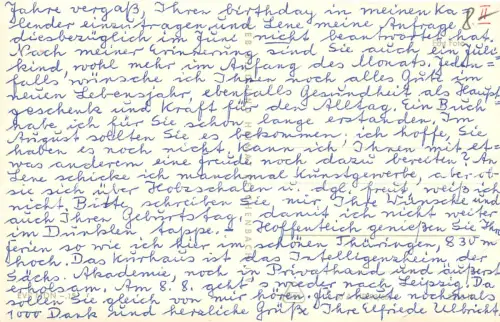 Jahre vergaß, Ihren birthday in meinen Ka= 8 II
lender einzutragen und Lene meine Anfrage
diesbezüglich im Juni nicht beantwortet hat.
Nach meiner Erinnerung sind Sie auch ein Juli=
kind, wohl mehr im Anfang des Monats. Jeden=
falls wünsche ich Ihnen noch alles Gute im
neuen Lebensjahr, ebenfalls Gesundheit als Haupt
geschenk und Kraft für den Alltag. Ein Buch
habe ich für Sie schon lange erstanden. Im
August sollten Sie es bekommen; ich hoffe, Sie
haben es noch nicht. Kann ich Ihnen mit et=
was anderem eine Freude noch dazu bereiten? An
Lene schicke ich manchmal Kunstgewerbe, aber ob
sie sich über Holzschalen u. dgl. freut, weiß ich
nicht. Bitte, schreiben Sie mir, Ihre Wünsche und
auch Ihren Geburtstag, damit ich nicht weiter
im Dunklen tappe. – Hoffentlich genießen Sie Ihre
Ferien so wie ich hier im schönen Thüringen, 830 m
hoch. Das Kurhaus ist das Intelligenzheim der
Sächs. Akademie, noch in Privathand und äußerst
erholsam. Am 8. 8. geht's wieder nach Leipzig. Da
sollen Sie gleich von mir hören. Für heute nochmals
1000 Dank und herzliche Grüße Ihre Elfriede Ulbricht